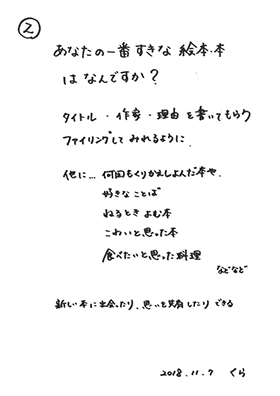 ②
あなたの一番すきな 絵本・本
は なんですか？
タイトル ・ 作家 ・ 理由 を書いてもらう
ファイリングして みれるように
他に… 何回もくりかえしよんだ本や、
好きなことば
ねるとき よむ本
こわいと思った本
食べたいと思った料理
などなど
新しい本に出会ったり、思いを共有したり できる
2018.11.7 くら